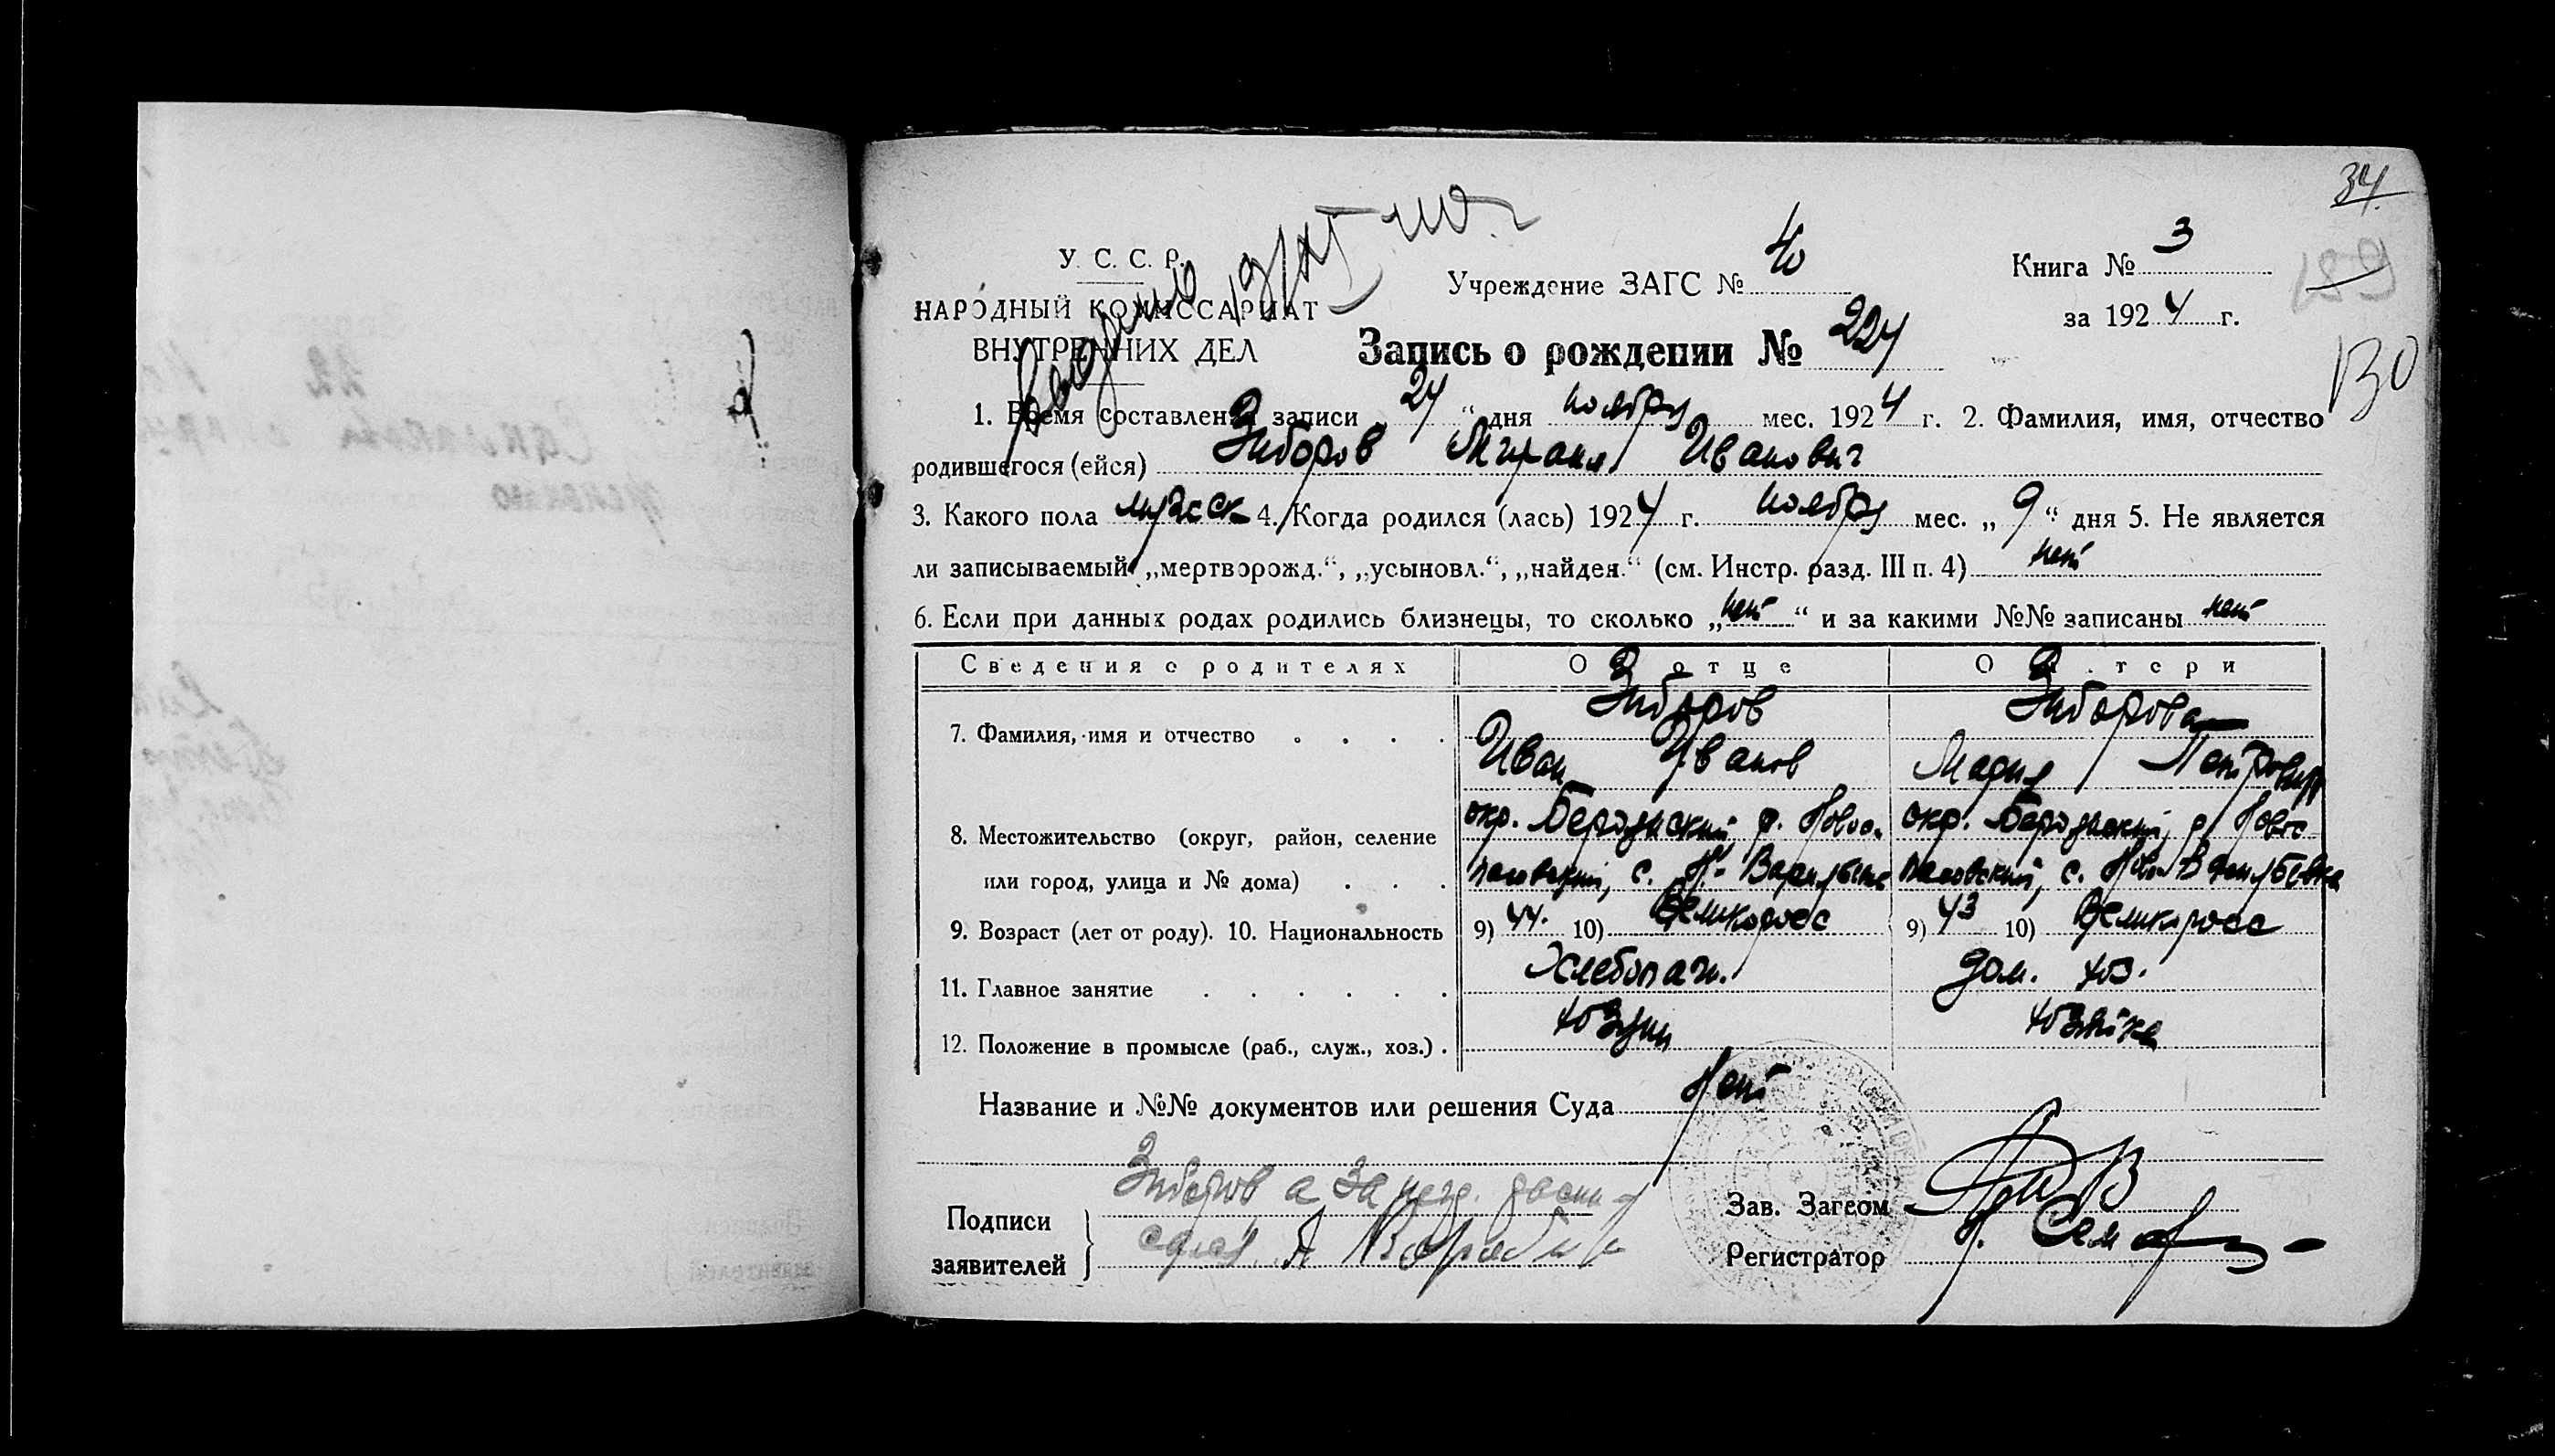 34
У. С. С. Р.
НАРОДНЫЙ КОМИССАРИАТ
ВНУТРЕННИХ ДЕЛ
Учреждение ЗАГС № 40
Книга № 3
за 1924 г.
Запись о рождении № 224
130
1. Время составления записи „24“ дня ноября мес. 1924 г. 2. Фамилия, имя, отчество
родившегося (ейся) Зиборов Иванович
3. Какого пола мужск 4. Когда родился (лась) 1924 г. ноября мес. „9“ дня 5. Не является
ли записываемый „мертворожд.“, „усыновл.“, „найден.“ (см. Инстр. разд. III п. 4) нет
6. Если при данных родах родились близнецы, то сколько „нет“ и за какими №№ записаны нет
Сведения о родителях О отце О матери
7. Фамилия, имя и отчество . . . . Зиборов Зиборова
Иван Иванов Мария Петровна
8. Местожительство (округ, район, селение окр. Бердянский р. Новос окр. Бердянский, р Новос
или город, улица и № дома) . . . пасовский, с. Н.- Васильевка пасовский, с. Ново Васильевка
9. Возраст (лет от роду). 10. Национальность 9) 44. 10) Великоросс 9) 43 10) Великоросс
11. Главное занятие . . . . . . Хлебопаш. Дом. хоз.
12. Положение в промысле (раб., служ., хоз.) . хозяин хозяйка
Название и №№ документов или решения Суда Нет
Подписи
заявителей
Зиборов а за
Зав. Загсом
Регистратор